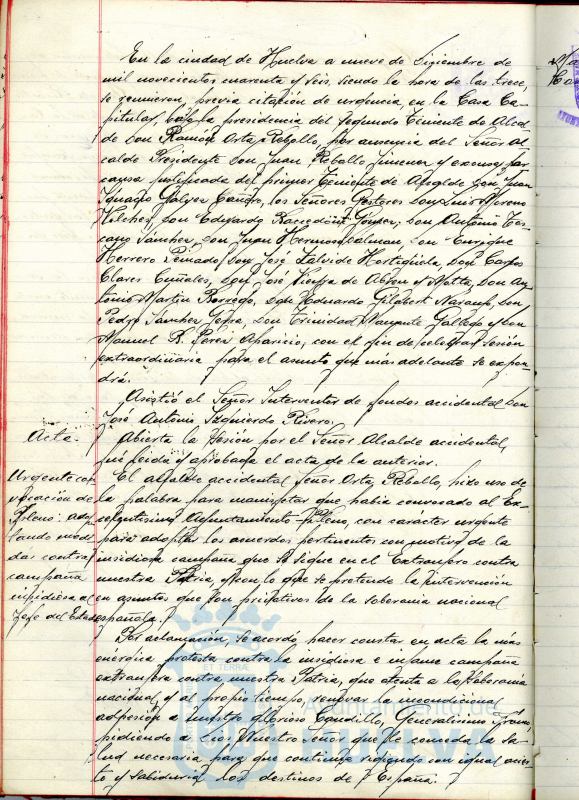 En la ciudad de Huelva a nueve de Diciembre de
mil novecientos cuarenta y seis, siendo la hora de las trece,
se reunieron, previa citación de urgencia, en la Casa Ca-
pitular, bajo la presidencia del Segundo Teniente de Alcal-
de Don Ramón Orta Rebollo, por ausencia del Señor Al-
calde Presidente Don Juan Rebollo Jimenez y excusa por
causa justificada del primer Teniente de Alcalde Don Juan
Ignacio Galvez Cañero, los Señores Gestores Don Luis Moreno
Vilches, Don Eduardo Gómez, Don Antonio Tos-
cano Sánchez, Don Juan Hermoso, Don Enrique
Herrero Peinado, Don José Zalvide Hortigüela, Don Carlos
Clares Cuñales, Don José Vieyra de Abreu y Motta, Don An-
tonio Martin Borrego, Don Eduardo Gilabert Naranjo, Don
Pedro Sánchez, Don Trinidad Navarrete Gallego y Don
Manuel R. Perez Aparicio, con el fin de celebrar Sesión
extraordinaria para el asunto que más adelante se expon-
drá.
Asistió el Señor Interventor de fondos accidental Don
José Antonio Izquierdo Rivero.
Acta.-
Abierta la Sesión por el Señor Alcalde accidental,
fué leida y aprobada el acta de la anterior.
Urgente con-
vocación de
Pleno: adop-
tando medi-
das contra
campaña
insidiosa al
Jefe del Estado
El alcalde accidental Señor Orta Rebollo, hizo uso de
la palabra para manifestar que habia convocado al Ex-
celentisimo Ayuntamiento Pleno, con carácter urgente
para adoptar los acuerdos pertinentes con motivo de la
insidiosa campaña que se sigue en el Extranjero contra
nuestra Patria, y con lo que se pretende la intervención
en asuntos que son privativos de la soberania nacional
española.
Por aclamación, se acordó hacer constar en acta la más
enérgica protesta contra la insidiosa e infame campaña
extranjera contra nuestra Patria, que atenta a la Soberania
nacional, y al propio tiempo, renovar la inconmovible
adhesión a nuestro glorioso Caudillo, Generalisimo Franco,
pidiendo a Dios Nuestro Señor que le conceda la Sa-
lud necesaria para que continue rigiendo con igual acier-
to y Sabiduria los destinos de España.
Ayuntamiento de
HUELVA